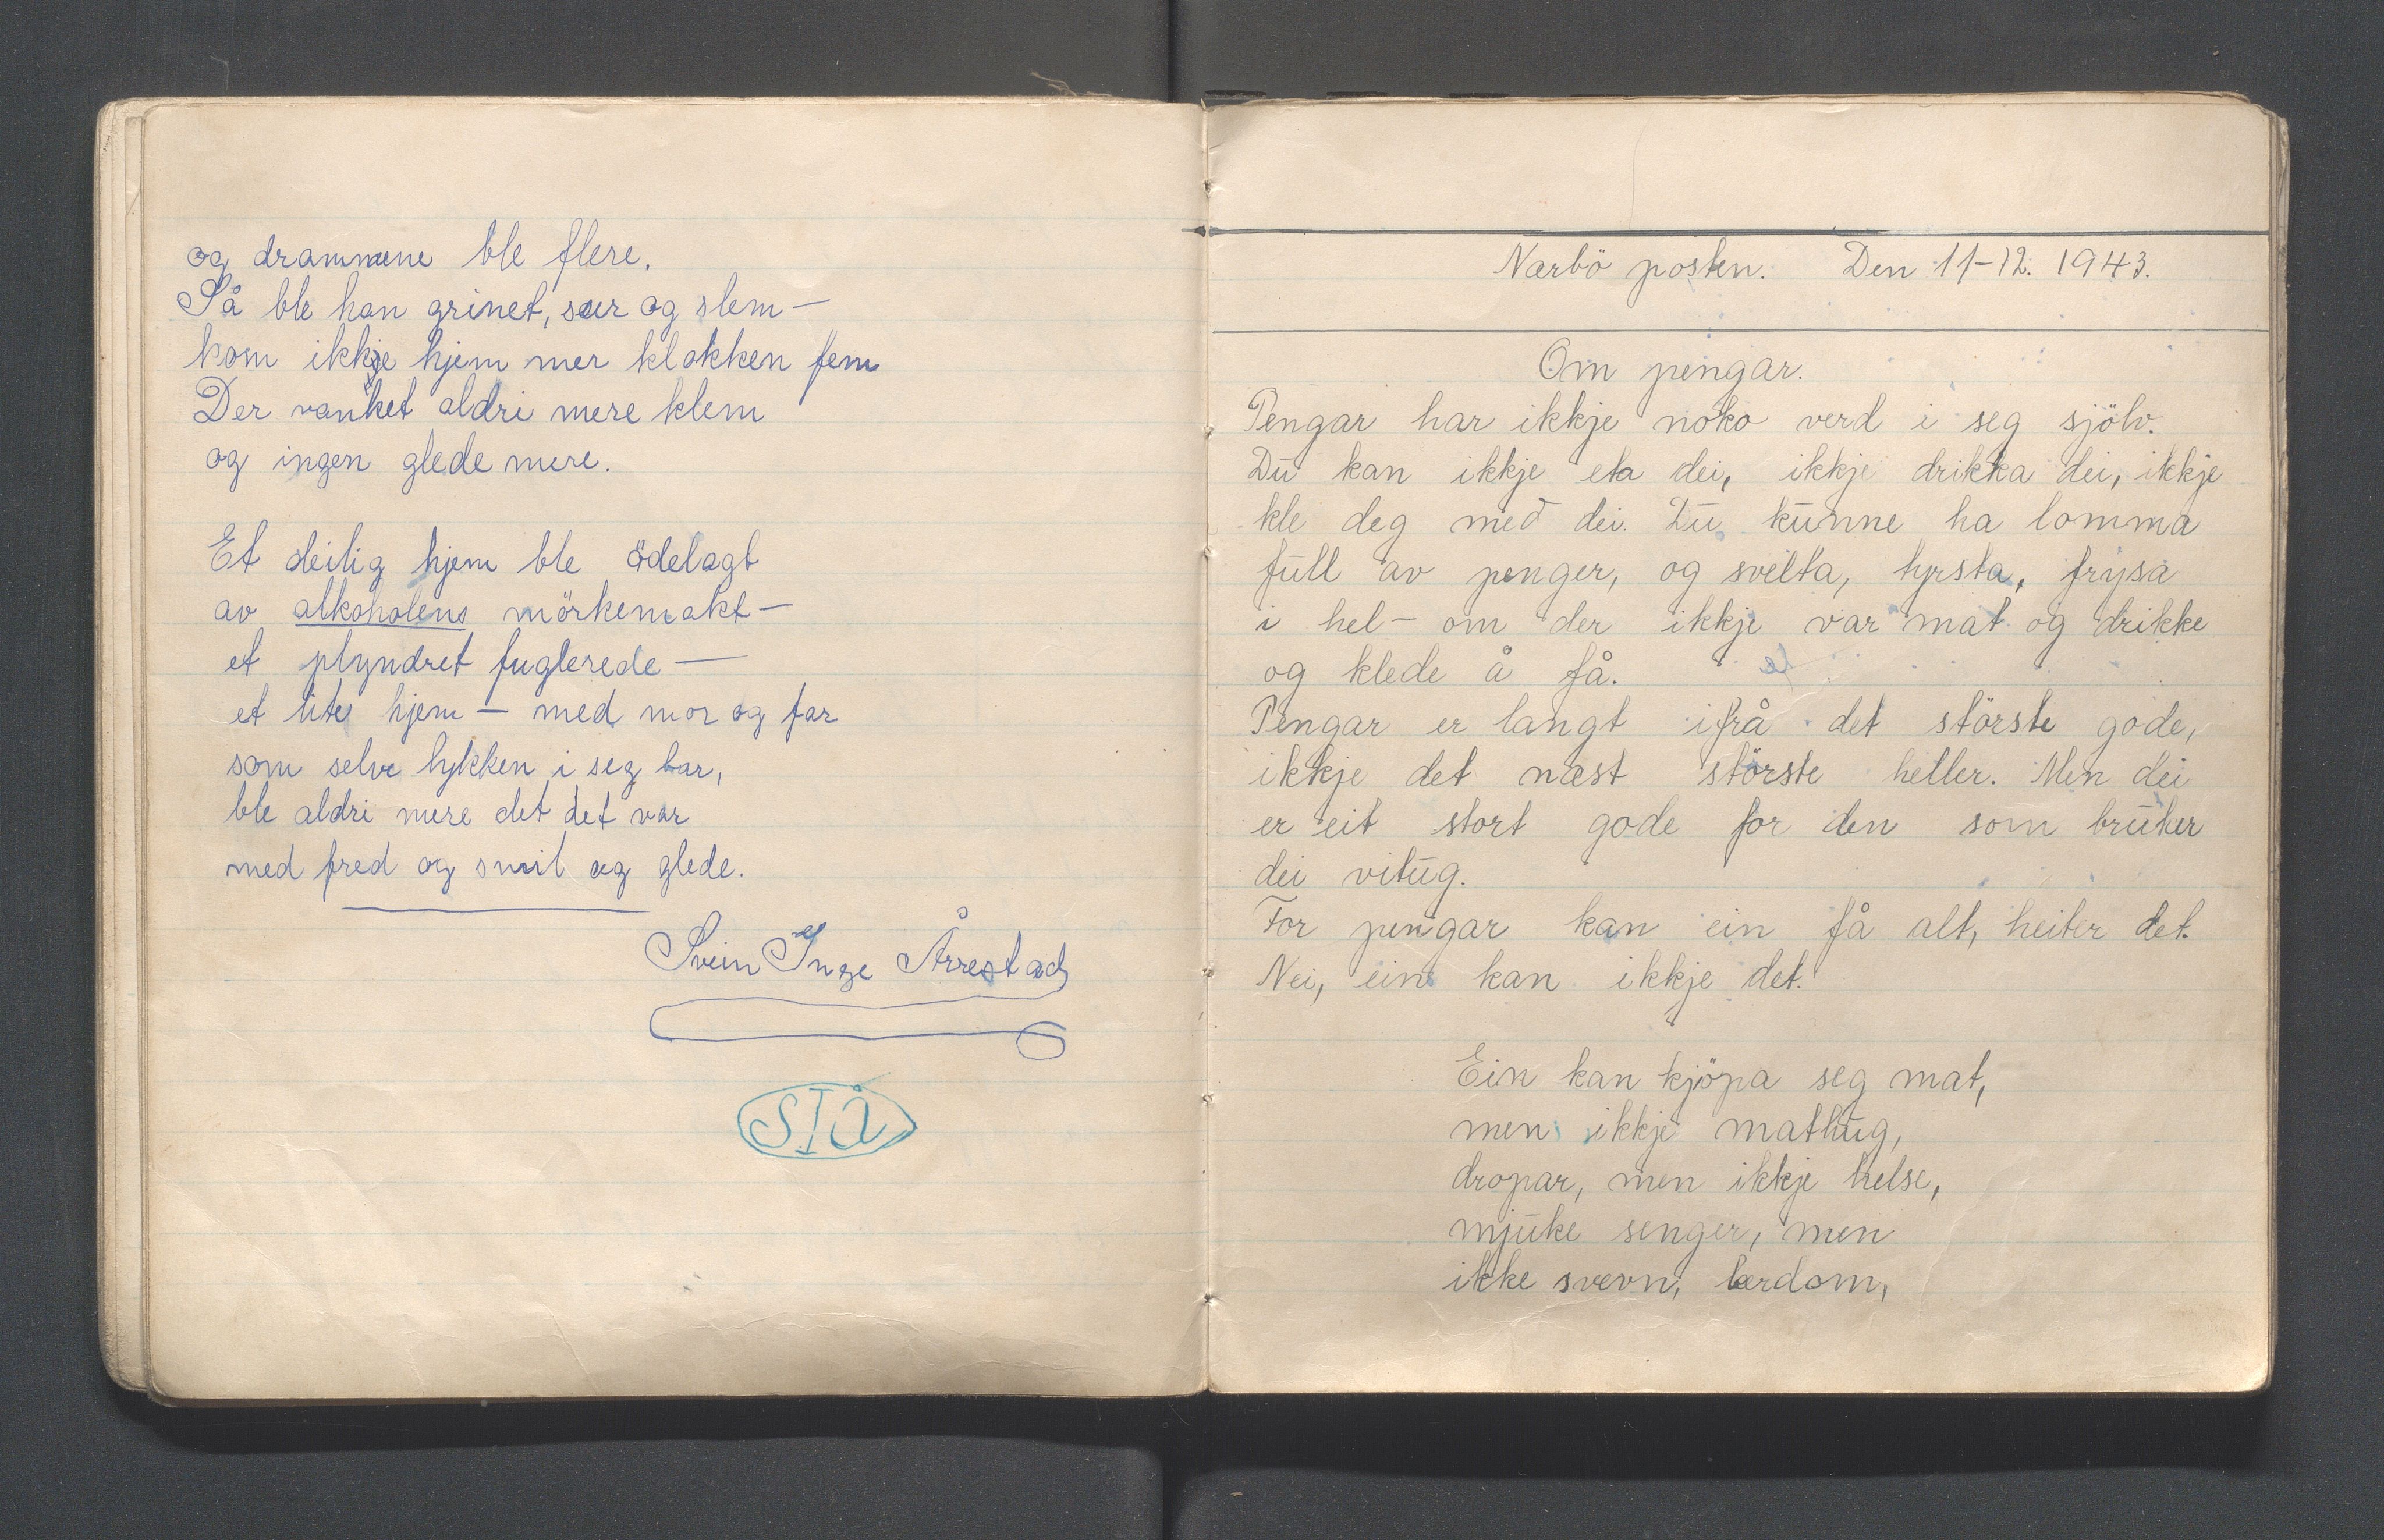 og drammene ble flere.
Så ble han grinet, sur og slem —
kom ikkje hjem mer klokken fem
Der vanket aldri mere klem
og ingen glede mere.
Et deilig hjem ble ödelagt
av alkoholens mörkemakt —
et plyndret fuglerede —
et lite hjem — med mor og far
som selve lykken i seg bar,
ble aldri mere det det var
med fred og smil og glede.
Svein Inge Årrestad
SIÅ
Nærbö posten. Den 11-12. 1943.
Om pengar.
Pengar har ikkje noko verd i seg sjölv.
Du kan ikkje eta dei, ikkje drikka dei, ikkje
kle deg med dei. Du kunne ha lomma
full av penger, og svelta, tyrsta, frysa
i hel — om der ikkje var mat og drikke
og klede å få.
Pengar er langt ifrå det störste gode,
ikkje det næst störste heller. Men dei
er eit stort gode for den som bruker
dei vitug.
For pengar kan ein få alt, heiter det.
Nei, ein kan ikkje det.
Ein kan kjöpa seg mat,
men ikkje mathug,
dropar, men ikkje helse,
mjuke senger, men
ikke svevn, lærdom,